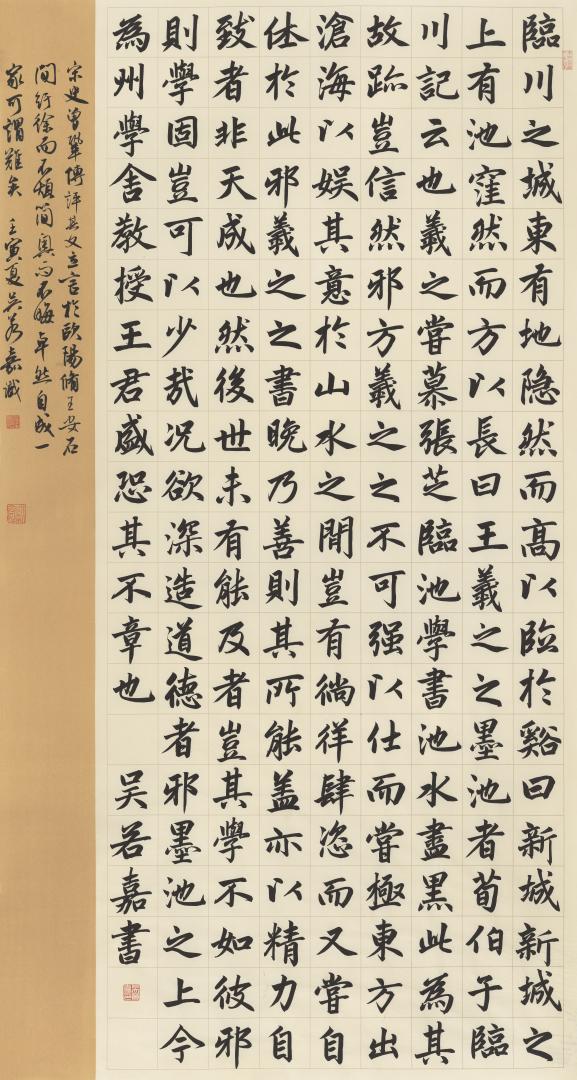 臨川之城東有地隐然而高以臨於谿曰新城新城之
上有池窪然而方以長曰王羲之之墨池者荀伯子臨
川記云也羲之嘗慕張芝臨池學書池水盡黑此為其
故跡豈信然邪方羲之之不可强以仕而嘗極東方出
滄海以娛其意於山水之間豈有徜徉肆恣而又嘗自
休於此邪羲之之書晚乃善則其所能蓋亦以精力自
致者非天成也然後世未有能及者豈其學不如彼邪
則學固豈可以少哉况欲深造道德者邪墨池之上今
為州學舍教授王君盛恐其不章也 吳若嘉書
宋史曾鞏傳評其文立言於歐陽脩王安石
間紆徐而不煩簡奧而不晦卓然自成一
家可謂難矣 壬寅夏吳若嘉識